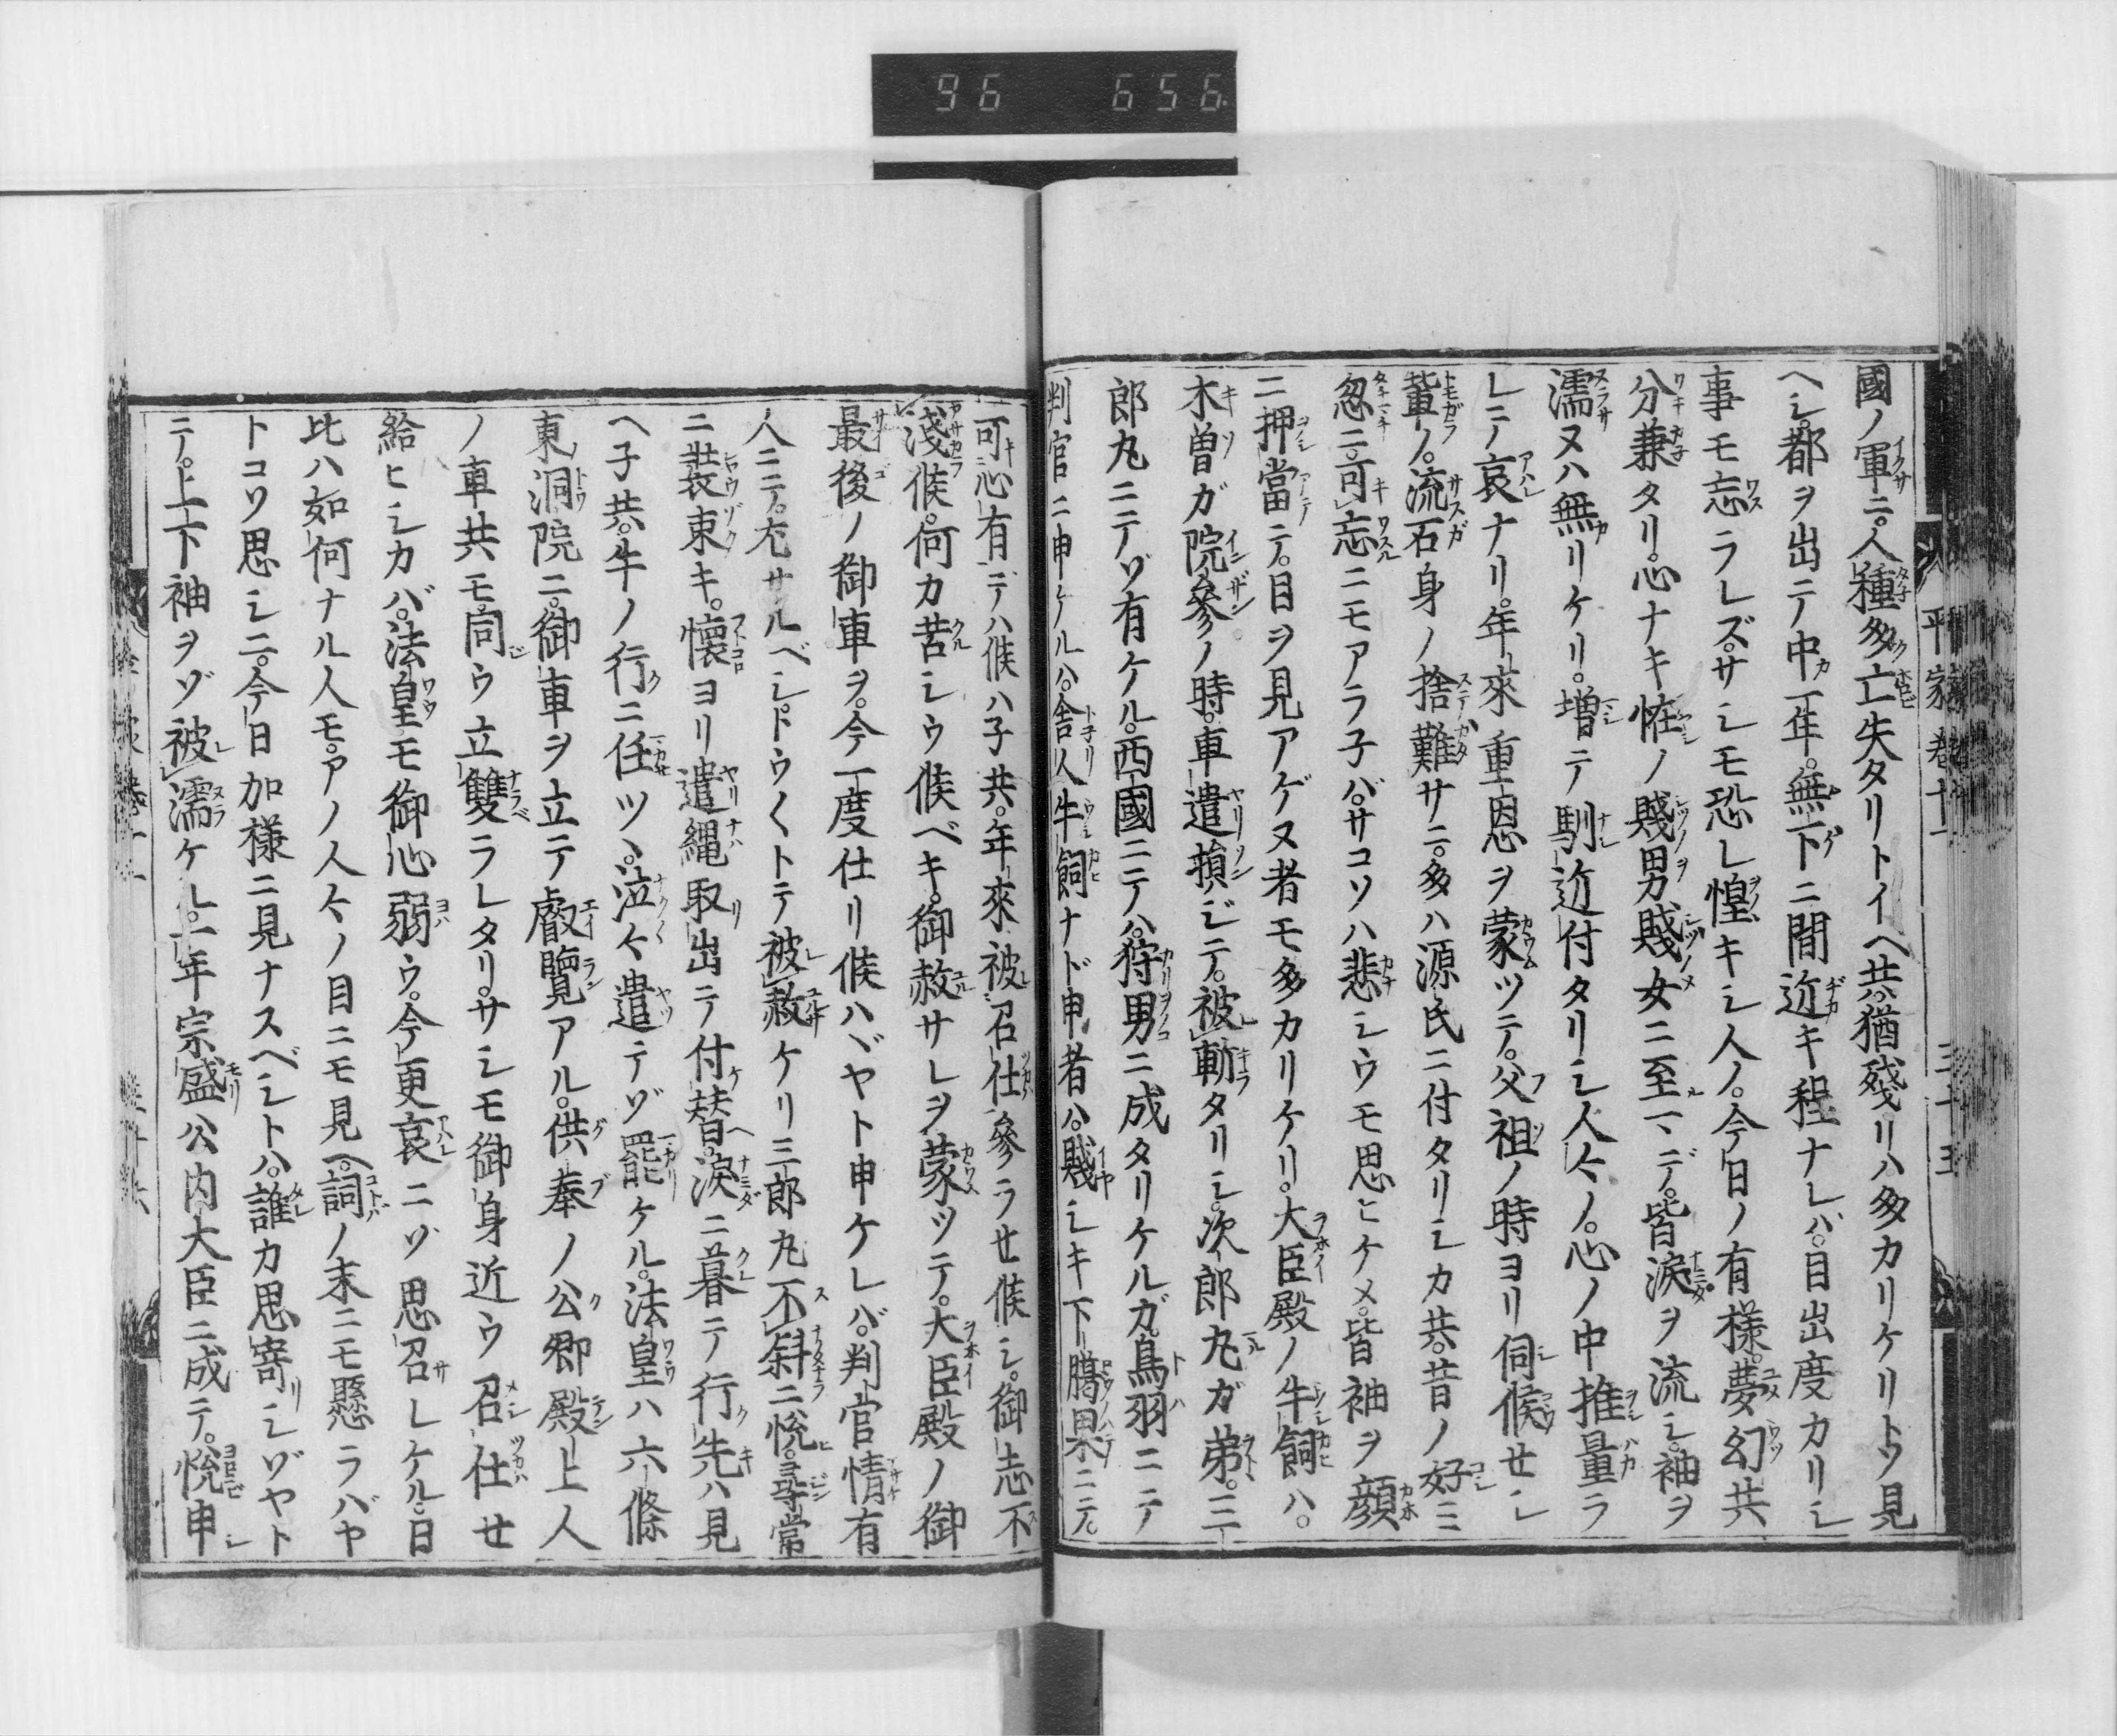 96 656
國ノ軍ニ。人種多亡失タリトイヘ共。猶殘リハ多カリケリトゾ見
ヘシ。都ヲ出テ中一年。無下ニ間近キ程ナレバ。目出度カリシ
事モ忘ラレズ。サシモ恐レ惶キシ人ノ。今日ノ有樣。夢幻共
分兼タリ。心ナキ恠ノ賤男賤女ニ至マデ。皆淚ヲ流シ。袖ヲ
濡ヌハ無リケリ。増テ馴近付タリシ人々ノ。心ノ中推量ラ
レテ哀ナリ。年來重恩ヲ蒙ツテ。父祖ノ時ヨリ伺候せシ
輩ノ。流石身ノ捨難サニ。多ハ源氏ニ付タリシカ共。昔ノ好ミ
忽ニ可忘ニモアラ子バ。サコソハ悲シウモ思ヒケメ。皆袖ヲ顔
ニ押當テ。目ヲ見アゲヌ者モ多カリケリ。大臣殿ノ牛飼ハ。
木曽ガ院參ノ時。車遣損ジテ。被斬タリシ。次郎丸ガ弟。三
郎丸ニテゾ有ケル。西國ニテハ。狩男ニ成タリケルガ。鳥羽ニテ
判官ニ申ケルハ。舎人牛飼ナド申者ハ。賤シキ下﨟果ニテ。
平家卷十一 三十五
可心有ニテハ候ハ子共。年來被召仕參ラせ候シ。御志不
淺候。何カ苦シウ候ベキ。御赦サレヲ蒙ツテ。大臣殿ノ御
最後ノ御車ヲ。今一度仕リ候ハヾヤト申ケレバ。判官情有
人ニテ。尤サルベシ。トウ〱トテ被赦ケリ三郎丸不斜ニ悅。尋常
ニ裝束キ。懷ヨリ遣縄取出テ付替。淚ニ暮テ行先ハ見
ヘ子共。牛ノ行ニ任ツヽ。泣々遣テゾ罷ケル。法皇ハ六條
東洞院ニ。御車ヲ立テ叡覽アル。供奉ノ公卿殿上人
ノ車共モ。同ウ立雙ラレタリ。サシモ御身近ウ召仕せ
給ヒシカバ。法皇モ御心弱ウ。今更哀ニゾ思召レケル。日
比ハ如何ナル人モ。アノ人々ノ目ニモ見ヘ。詞ノ末ニモ懸ラバヤ
トコソ思シニ。今日加樣ニ見ナスベシトハ。誰カ思寄シゾヤト
テ。上下袖ヲゾ被濡ケル。一年宗盛公内大臣ニ成テ。悅申